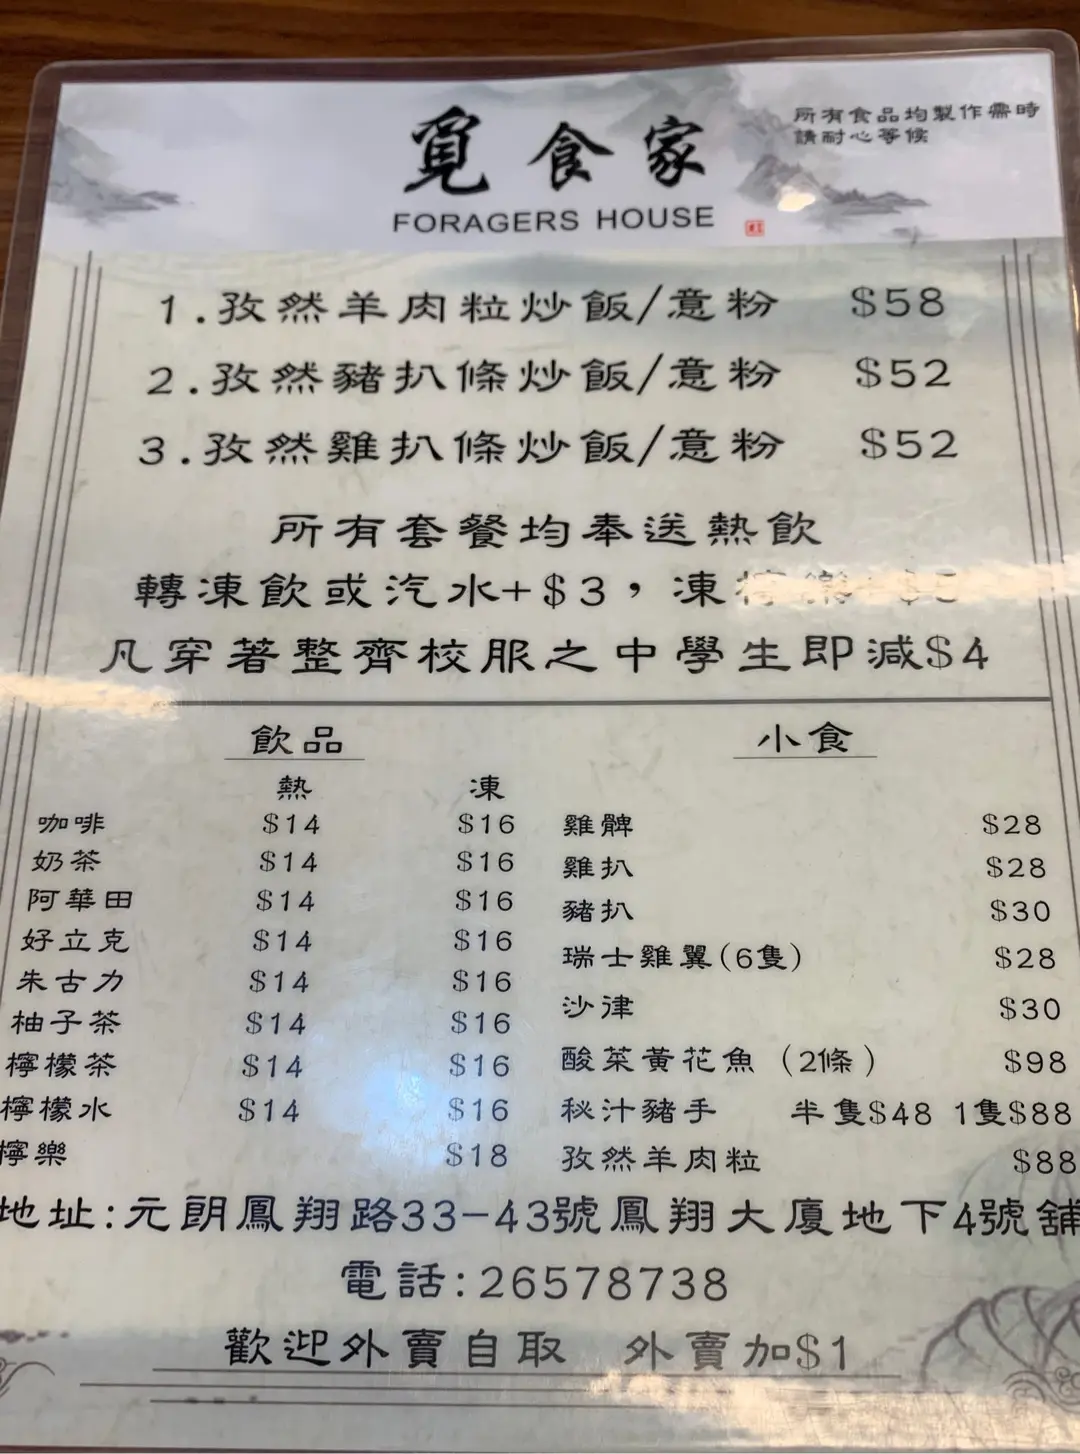 覓食家
FORAGERS HOUSE
所有食品均製作需時
請耐心等候
1.孜然羊肉粒炒飯/意粉 $58
2.孜然豬扒條炒飯/意粉 $52
3.孜然雞扒條炒飯/意粉 $52
所有套餐均奉送熱飲
轉凍飲或汽水+$3，凍
凡穿著整齊校服之中學生即減$4
飲品
熱 凍
咖啡 $14 $16
奶茶 $14 $16
阿華田 $14 $16
好立克 $14 $16
朱古力 $14 $16
柚子茶 $14 $16
檸檬茶 $14 $16
檸檬水 $14 $16
檸樂 $18
小食
雞髀 $28
雞扒 $28
豬扒 $30
瑞士雞翼(6隻) $28
沙律 $30
酸菜黃花魚（2條） $98
秘汁豬手 半隻$48 1隻$88
孜然羊肉粒 $88
地址:元朗鳳翔路33-43號鳳翔大廈地下4號舖
電話:26578738
歡迎外賣自取 外賣加$1